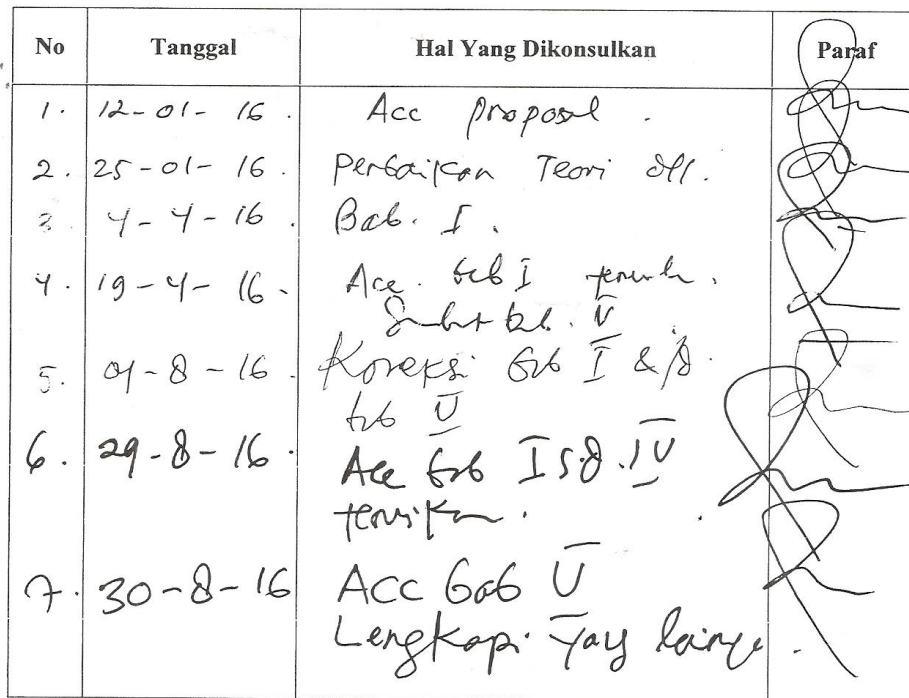 No Tanggal Hal Yang Dikonsulkan Paraf
1. 12-01-16. Acc proposal.
2. 25-01-16. Perbaikan Teori dll.
3 4-4-16 Bab. I.
4. 19-4-16. Acc. bab I
bab. V
5. 01-8-16. Koreksi bab I &
bab V
6. 29-8-16. Acc bab I s.d. IV
teruskan.
7. 30-8-16 ACC bab V
Lengkapi yang lainya.